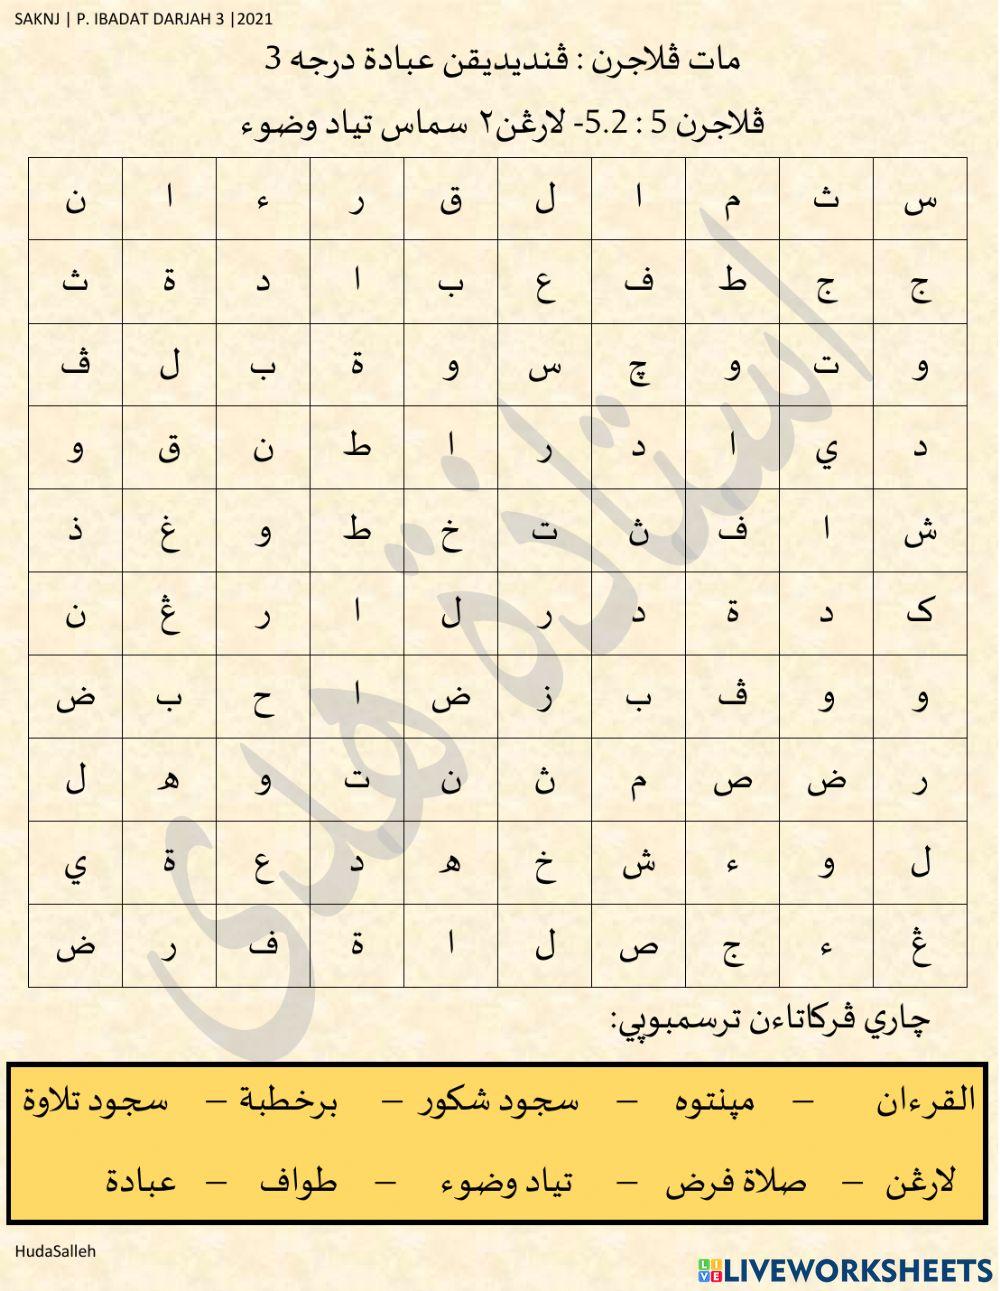 SAKNJ | P. IBADAT DARJAH 3 |2021
مات ڤلاجرن : ڤنديديقن عبادة درجه 3
ڤلاجرن 5 : 5.2- لارڠن٢ سماس تياد وضوء
س ث م ا ل ق ر ء ا ن
ج ج ط ف ع ب ا د ة ث
و ت و چ س و ة ب ل ڤ
د ي ا د ر ا ط ن ق و
ش ا ف ث ت خ ط و غ ذ
ک د ة د ر ل ا ر ڠ ن
و و ڤ ب ز ض ا ح ب ض
ر ض ص م ث ن ت و ه ل
ل و ء ش خ ه د ع ة ي
ڠ ء ج ص ل ا ة ف ر ض
چاري ڤرکاتاءن ترسمبوڽي:
القرءان – مڽنتوه – سجود شکور – برخطبة – سجود تلاوة
لارڠن – صلاة فرض – تياد وضوء – طواف – عبادة
استاذة هدى
HudaSalleh
LIVEWORKSHEETS